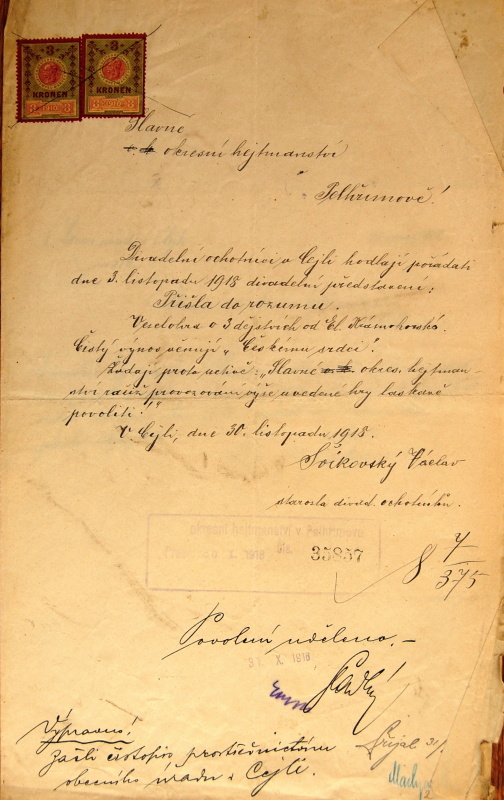 3 3
KRONEN KRONEN
Slavné
c. k. okresní hejtmanství
v Pelhřimově!
Divadelní ochotníci v Cejli hodlají pořádati
dne 3. listopadu 1918 divadelní představení:
Přišla do rozumu.
Veselohra o 3 dějstvích od El.
Čistý výnos věnují „Českému srdci".
Žádají proto uctivě: „Slavné c. k. okres. hejtman-
ství račiž provozování výše uvedené hry laskavě
povoliti!"
V Cejli, dne 30. listopadu 1918.
Svíkovský Václav
starosta divad. ochotníků.
okresní hejtmanství v Pelhřimově
X. 1918 čís. 35857
8 4/375
Povolení uděleno.—
31. X. 1918
Vypraveno!
zašli čistopis prostřednictvím
obecního úřadu v Cejli.